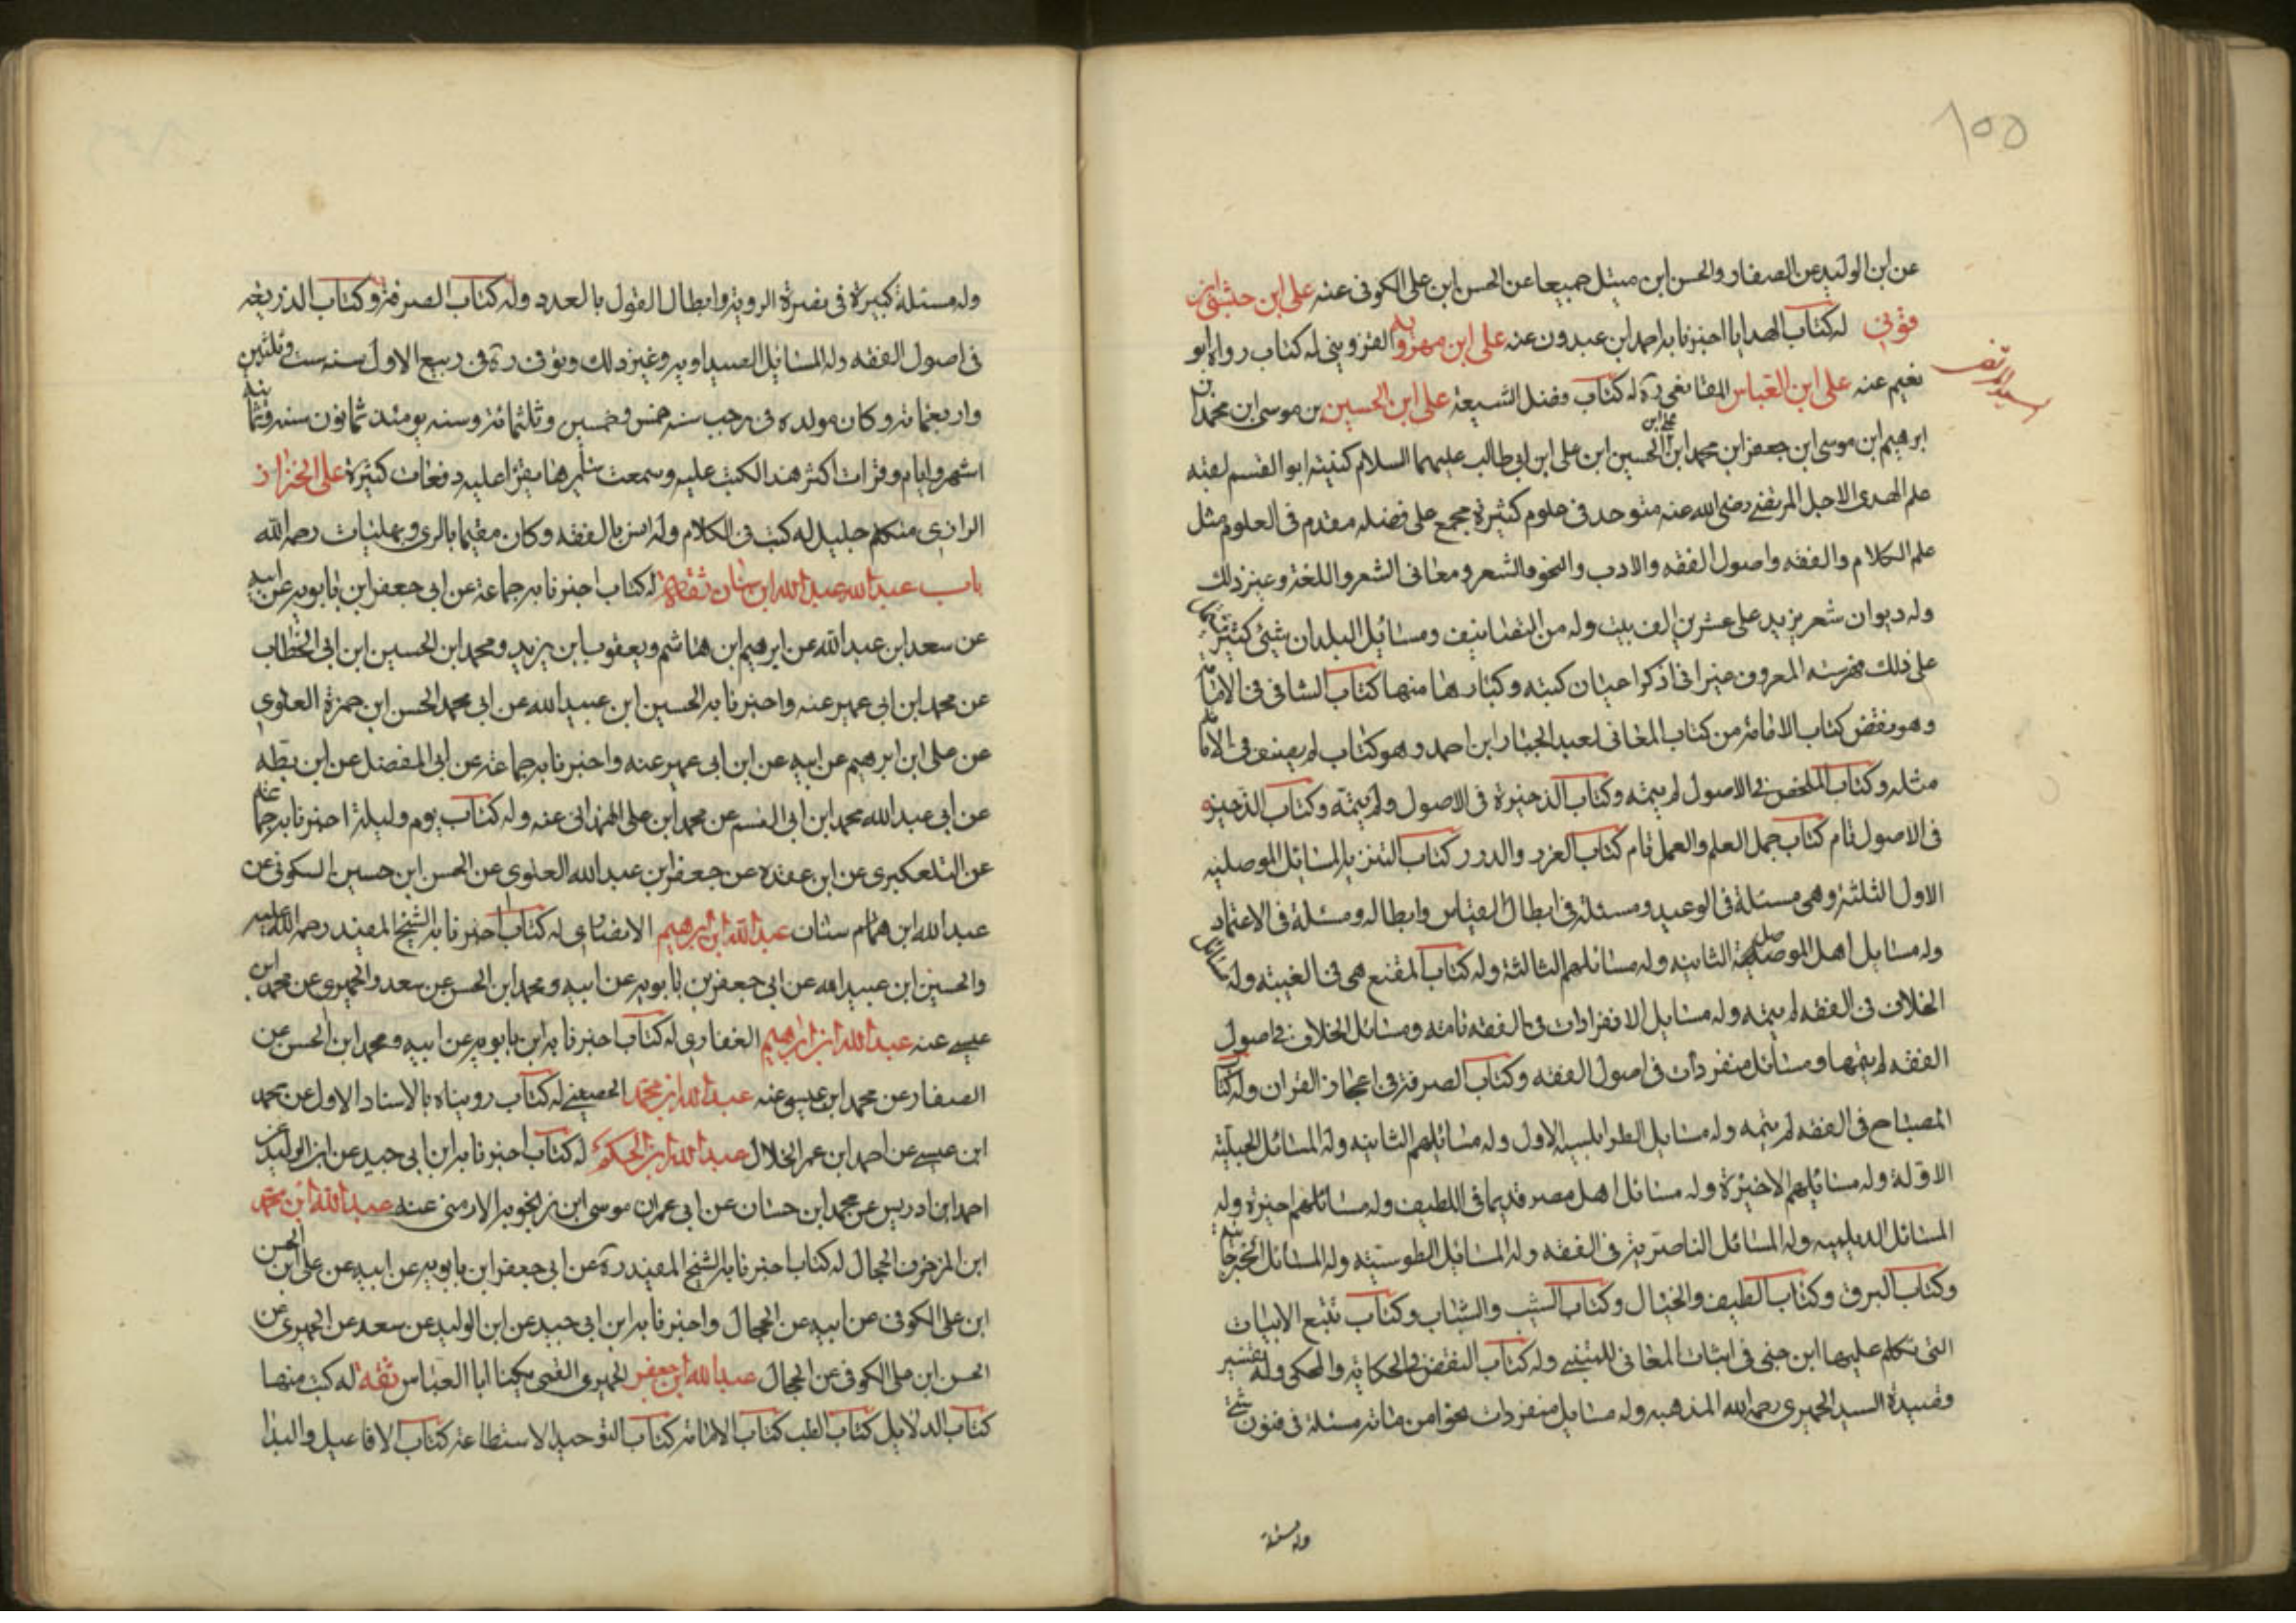 ١٥٥
عن ابن الوليد عن الصفار والحسن ابن متيل جميعا عن الحسن ابن على الكوفى عنه على ابن حبشى ابن
قونى له كتاب الهدايا اخبرنا به احمد ابن عبدون عنه على ابن مهرويه القزوينى له كتاب رواه ابو
نعيم عنه على ابن العباس المقانعى ره له كتاب فضل الشيعة على ابن الحسين بن موسى ابن محمد ابن
سيد مرتضى
ابرهيم ابن موسى ابن جعفر ابن محمد ابن على ابن الحسين ابن على ابن ابى طالب عليهما السلام كنيته ابو القسم لقبه
علم الهدى الاجل المرتضى رضى الله عنه متوحد فى علوم كثيرة مجمع على فضله مقدم فى العلوم مثل
علم الكلام والفقه واصول الفقه والادب والنحو والشعر ومعانى الشعر واللغة وغير ذلك
وله ديوان شعر يزيد على عشرين الف بيت وله من التصانيف ومسائل البلدان شئ كثير يشتمل
على ذلك فهرسته المعروف غير انى اذكر اعيان كتبه وكبارها منها كتاب الشافى فى الامامة
وهو نقض كتاب الامامة من كتاب المغانى لعبد الجبار ابن احمد وهو كتاب لم يصنف فى الامامة
مثله وكتاب الملخص فى الاصول لم يتمه وكتاب الذخيرة فى الاصول ولم يتمه وكتاب الذخيرة
فى الاصول تام كتاب جمل العلم والعمل تام كتاب الغرر والدرر كتاب التنزيه المسائل الموصلية
الاول الثلثة وهى مسئلة فى الوعيد ومسئلة فى ابطال القياس وابطاله ومسئلة فى الاعتماد
وله مسايل اهل الموصلية الثانية وله مسائلهم الثالثة وله كتاب المقنع هى فى الغيبة وله مسائل
الخلاف فى الفقه لم يتمه وله مسايل الانفرادات فى الفقه تامة ومسائل الخلاف فى اصول
الفقه لم يتمها ومسائل منفردات فى اصول الفقه وكتاب الصرفة فى اعجاز القران وله كتاب
المصباح فى الفقه لم يتمه وله مسايل الطرابلسية الاول وله مسائلهم الثانية وله المسائل الحلبية
الاولة وله مسائلهم الاخيرة وله مسائل اهل مصر قديما فى اللطيف وله مسائلهم اخيرة وله
المسائل الديلمية وله المسائل الناصرية فى الفقه وله المسايل الطوسية وله المسائل الجرجانية
وكتاب البرق وكتاب الطيف والخيال وكتاب الشيب والشباب وكتاب تتبع الابيات
التى تكلم عليها ابن جنى فى ابيات المعانى للمتنبى وله كتاب النقض فى الحكاية والمحكى وله تفسير
وقصيدة السيد الحميرى رحمه الله المذهبه وله مسايل منفردات نحوا من مائة مسئلة فى فنون شتى
وله مسئلة
وله مسئلة كبيرة فى نصرة الروية وابطال القول بالعدد وله كتاب الصرفة وكتاب الذريعة
فى اصول الفقه وله المسائل الصيداويه وغير ذلك وتوفى ره فى ربيع الاول سنه ست وثلثين
واربعمائة وكان مولده فى رجب سنه خمس وخمسين وثلثمائة وسنه يومئذ ثمانون سنه وثمانية
اشهر وايام وقرات اكثر هذا الكتب عليه وسمعت سايرها يقرا عليه دفعات كثيرة على الخزاز
الرازى متكلم جليل له كتب فى الكلام وله انس بالفقه وكان مقيما بالرى وبها مات رحمه الله
باب عبد الله عبد الله ابن سنان ثقة له كتاب اخبرنا به جماعة عن ابى جعفر ابن بابويه عن ابيه
عن سعد ابن عبد الله عن ابرهيم ابن هاشم ويعقوب ابن يزيد ومحمد ابن الحسين ابن ابى الخطاب
عن محمد ابن ابى عمير عنه واخبرنا به الحسين ابن عبيد الله عن ابى محمد الحسن ابن حمزة العلوى
عن على ابن ابرهيم عن ابيه عن ابن ابى عمير عنه واخبرنا به جماعة عن ابى المفضل عن ابن بطه
عن ابى عبد الله محمد ابن ابى القسم عن محمد ابن على الهمدانى عنه وله كتاب يوم وليلة اخبرنا به جماعة
عن التلعكبرى عن ابن عقده عن جعفر ابن عبد الله العلوى عن الحسن ابن حسين السكونى عن
عبد الله ابن همام سنان عبد الله ابن ابرهيم الانصارى له كتاب اخبرنا به الشيخ المفيد رحمه الله عليه
والحسين ابن عبيد الله عن ابى جعفر بن بابويه عن ابيه ومحمد ابن الحسن عن سعد والحميرى عن محمد ابن
عيسى عنه عبد الله ابن ابرهيم الغفارى له كتاب اخبرنا به ابن بابويه عن ابيه ومحمد ابن الحسن عن
الصفار عن محمد ابن عيسى عنه عبد الله ابن محمد الحصينى له كتاب رويناه بالاسناد الاول عن محمد
ابن عيسى عن احمد ابن عمر الخلال عبد الله ابن الحكم له كتاب اخبرنا به ابن ابى جيد عن ابن الوليد عن
احمد ابن ادريس عن محمد ابن حسان عن ابى عمران موسى ابن زنجويه الارمنى عنه عبد الله ابن محمد
ابن المزخرف الحجال له كتاب اخبرنا به الشيخ المفيد ره عن ابى جعفر ابن بابويه عن ابيه عن على ابن الحسن
ابن على الكوفى عن ابيه عن الحجال واخبرنا به ابن ابى جيد عن ابن الوليد عن سعد عن الحميرى عن
الحسن ابن على الكوفى عن الحجال عبد الله ابن جعفر الحميرى القمى يكنا ابا العباس ثقة له كتب منها
كتاب الدلايل كتاب الطب كتاب الامامة كتاب التوحيد الاستطاعة كتاب الافاعيل والبدا